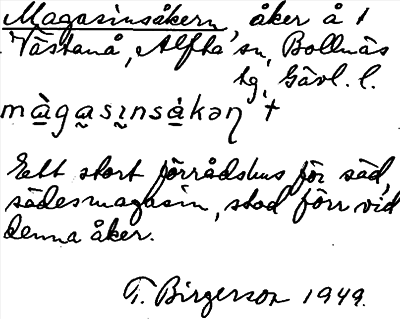 Magasinsåkern, åker å 1
Västanå, Alfta sn, Bollnäs
tg, Gävl. l.
màgasɪnsåkəɳ +
Ett stort förrådshus för säd,
sädesmagasin, stod förr vid
denna åker.
T. Birgerson 1949.